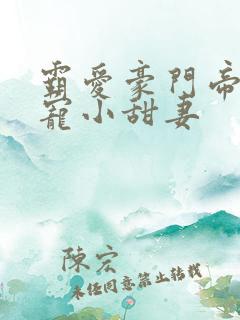 霸愛豪門帝
寵小甜妻
陳宏
未经同意禁止转载